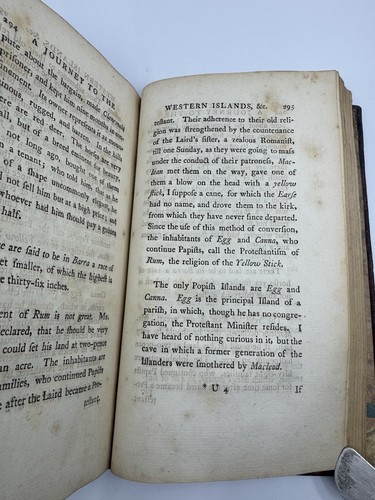 A JOURNEY TO THE
pute about the bargain, made Clanronald
priſoner; and kept him nine months in
inement. Its owner repreſents it as
ainous, rugged, and barren. In the hills
ere are red deer. The horſes are very
all, but of a breed eminent for
not long ago, bought one of
m a tenant; who told him, that as he
of a ſhape uncommonly elegant, he
d not ſell him but at a high price; and
whoever had him ſhould pay a guinea
half.
re are ſaid to be in Barra a race of
et ſmaller, of which the higheſt is
e thirty-ſix inches.
ent of Rum is not great. Mr.
eclared, that he ſhould be very
could ſet his land at two-pence
an acre. The inhabitants are
amilies, who continued Papiſts
e after the Laird became a Pro-
teſtant,
WESTERN ISLANDS, &c. 295
teſtant. Their adherence to their old reli-
gion was ſtrengthened by the countenance
of the Laird's ſiſter, a zealous Romaniſt,
till one Sunday, as they were going to maſs
under the conduct of their patroneſs, Mac-
lean met them on the way, gave one of
them a blow on the head with a yellow
ſtick, I ſuppoſe a cane, for which the Earſe
had no name, and drove them to the kirk,
from which they have never ſince departed.
Since the uſe of this method of converſion,
the inhabitants of Egg and Canna, who
continue Papiſts, call the Proteſtantiſm of
Rum, the religion of the Yellow Stick.
The only Popiſh Iſlands are Egg and
Canna. Egg is the principal Iſland of a
pariſh, in which, though he has no congre-
gation, the Proteſtant Miniſter reſides. I
have heard of nothing curious in it, but the
cave in which a former generation of the
Iſlanders were ſmothered by Macleod.
*U 4 If